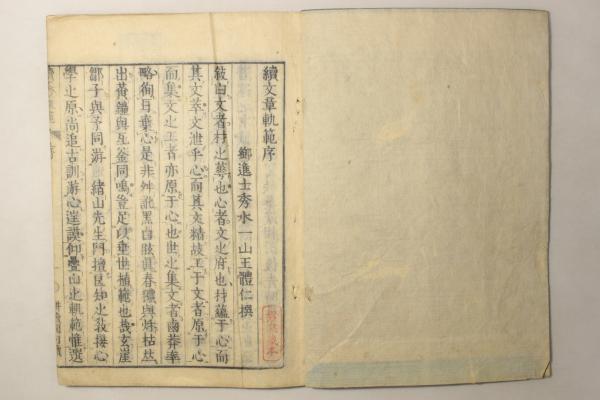 續文章軌範序
鄉進士秀水一山王體仁撰
敍曰文者材之華也心者文之府也抒蘊于心而
其文萃文泄乎心而其文精故工于文者原于心
而集文之工者亦原于心也世之集文者鹵莽率
略徇耳棄心是非舛訛黑白眩眞春穠與姝枯並
出黃鐘與瓦釜同鳴豈足以垂世植範也哉玄崖
鄒子與予同游緒山先生門擅良知之敎接心
學之原尚追古訓游心達謨仰疊山之軌範惟選